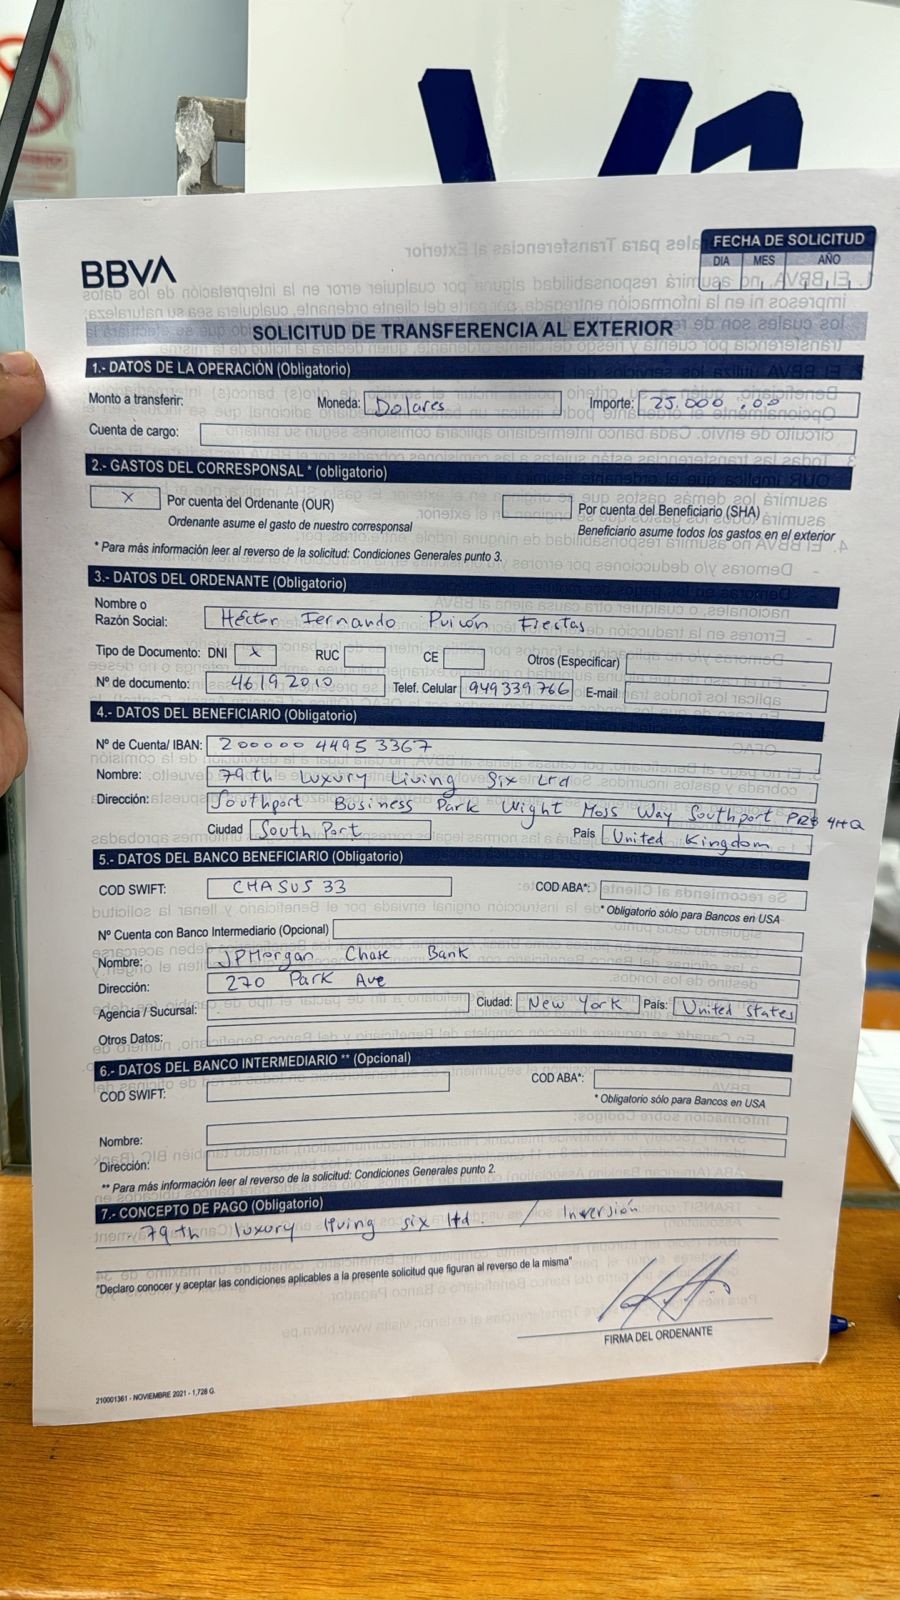 BBVA
FECHA DE SOLICITUD
DIA MES AÑO
SOLICITUD DE TRANSFERENCIA AL EXTERIOR
1.- DATOS DE LA OPERACIÓN (Obligatorio)
Monto a transferir: Moneda: Dolares Importe: 25,000.00
Cuenta de cargo:
2.- GASTOS DEL CORRESPONSAL * (obligatorio)
X Por cuenta del Ordenante (OUR) Por cuenta del Beneficiario (SHA)
Ordenante asume el gasto de nuestro corresponsal Beneficiario asume todos los gastos en el exterior
* Para más información leer al reverso de la solicitud: Condiciones Generales punto 3.
3.- DATOS DEL ORDENANTE (Obligatorio)
Nombre o
Razón Social: Héctor Fernando Puicón Fiestas
Tipo de Documento: DNI X RUC CE Otros (Especificar)
Nº de documento: 46192010 Telef. Celular 949339766 E-mail
4.- DATOS DEL BENEFICIARIO (Obligatorio)
Nº de Cuenta/ IBAN: 20000044953367
Nombre: 79th Luxury Living Six Ltd
Dirección: Southport Business Park Wight Moss Way Southport PR8 4HQ
Ciudad South Port País United Kingdom
5.- DATOS DEL BANCO BENEFICIARIO (Obligatorio)
COD SWIFT: CHASUS33 COD ABA*:
* Obligatorio sólo para Bancos en USA
Nº Cuenta con Banco Intermediario (Opcional)
Nombre: JPMorgan Chase Bank
Dirección: 270 Park Ave
Agencia / Sucursal: Ciudad: New York País: United States
Otros Datos:
6.- DATOS DEL BANCO INTERMEDIARIO ** (Opcional)
COD SWIFT: COD ABA*:
* Obligatorio sólo para Bancos en USA
Nombre:
Dirección:
** Para más información leer al reverso de la solicitud: Condiciones Generales punto 2.
7.- CONCEPTO DE PAGO (Obligatorio)
79th luxury living six ltd / Inversión
"Declaro conocer y aceptar las condiciones aplicables a la presente solicitud que figuran al reverso de la misma"
FIRMA DEL ORDENANTE
210001361 - NOVIEMBRE 2021 - 1,728 G.